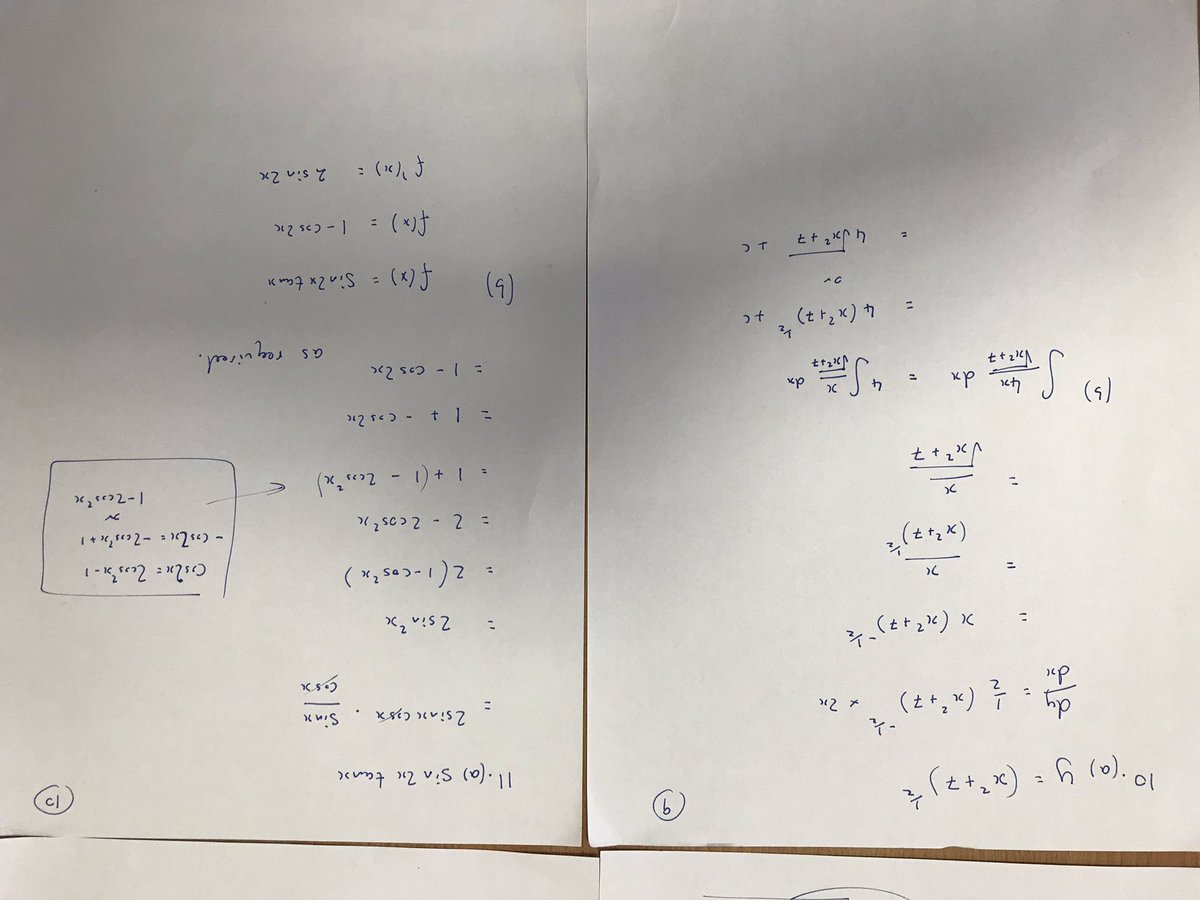 9
10.(a) y = (x² + 7)^½
dy/dx = ½ (x² + 7)^-½ × 2x
= x (x² + 7)^-½
= x / (x² + 7)^½
= x / √(x² + 7)
(b) ∫ 4x/√(x²+7) dx = 4 ∫ x/√(x²+7) dx
= 4 (x² + 7)^½ + c
or
= 4 √(x² + 7) + c
10
11.(a) Sin2x tanx
= 2sinx cosx . Sinx/Cosx
= 2sin²x
= 2(1-cos²x)
= 2 - 2cos²x
= 1 + (1 - 2cos²x)
Cos2x = 2cos²x - 1
- cos2x = -2cos²x + 1
or
1 - 2cos²x
= 1 + - cos2x
= 1 - cos2x
as required.
(b) f(x) = Sin2x tanx
f(x) = 1 - cos2x
f'(x) = 2 sin2x